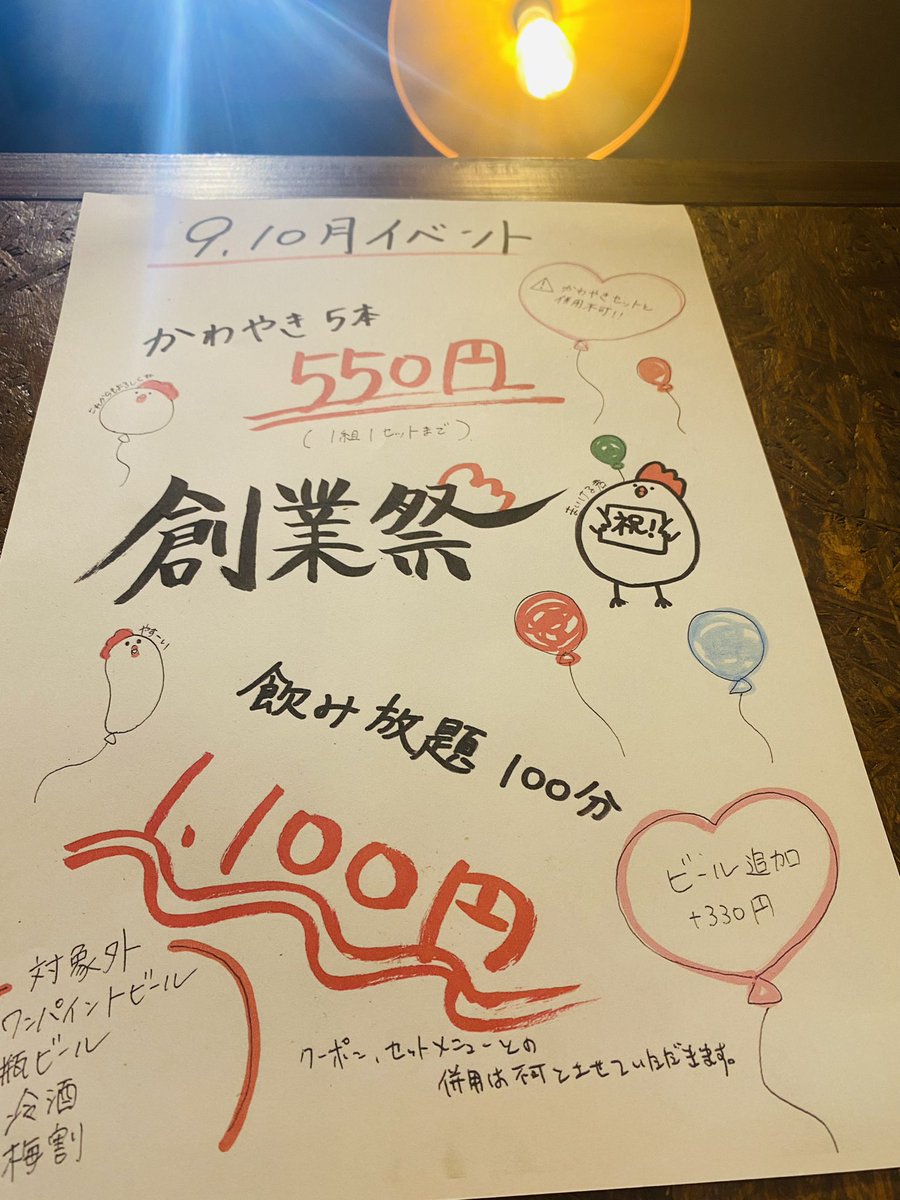 9.10月イベント
⚠ かわやきセットと
併用不可!!
かわやき 5本
550円
(1組1セットまで)
これからもよろしくね
創業祭
祝!
やすーい
飲み放題 100分
1.100円
ビール追加
+330円
対象外
ワンパイントビール
瓶ビール
冷酒
梅割
クーポン、セットメニューとの
併用は不可とさせていただきます。